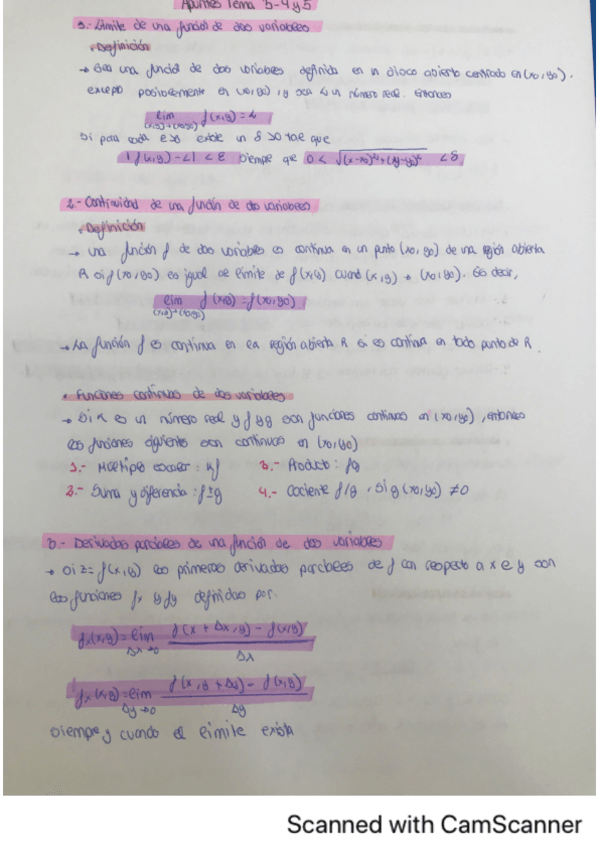 Apuntes Tema 3-4 y 5
1.- Límite de una función de dos variables
• Definición
→ Sea una función de dos variables definida en un disco abierto centrado en (x0, y0),
excepto posiblemente en (x0, y0), y sea L un número real. Entonces
lim f(x,y) = L
(x,y)→(x0,y0)
Si para cada ε>0 existe un δ>0 tal que
|f(x,y) - L| < ε siempre que 0 < √(x-x0)²+(y-y0)² < δ
2.- Continuidad de una función de dos variables
• Definición
→ una función f de dos variables es continua en un punto (x0, y0) de una región abierta
R si f(x0, y0) es igual al límite de f(x,y) cuando (x,y) → (x0, y0). Es decir,
lim f(x,y) = f(x0, y0)
(x,y)→(x0,y0)
→ La función f es continua en la región abierta R si es continua en todo punto de R.
• Funciones continuas de dos variables
→ Si k es un número real y f y g son funciones continuas en (x0, y0), entonces
las funciones siguientes son continuas en (x0, y0)
1.- Múltiplo escalar: kf 3.- Producto: fg
2.- Suma y diferencia: f±g 4.- Cociente f/g, si g(x0, y0) ≠ 0
3.- Derivadas parciales de una función de dos variables
→ Si z = f(x,y) las primeras derivadas parciales de f con respecto a x e y son
las funciones fx y fy definidas por:
fx(x,y) = lim f(x + Δx, y) - f(x,y)
Δx→0 Δx
fx(x,y) = lim f(x, y + Δy) - f(x,y)
Δy→0 Δy
siempre y cuando el límite exista
Scanned with CamScanner